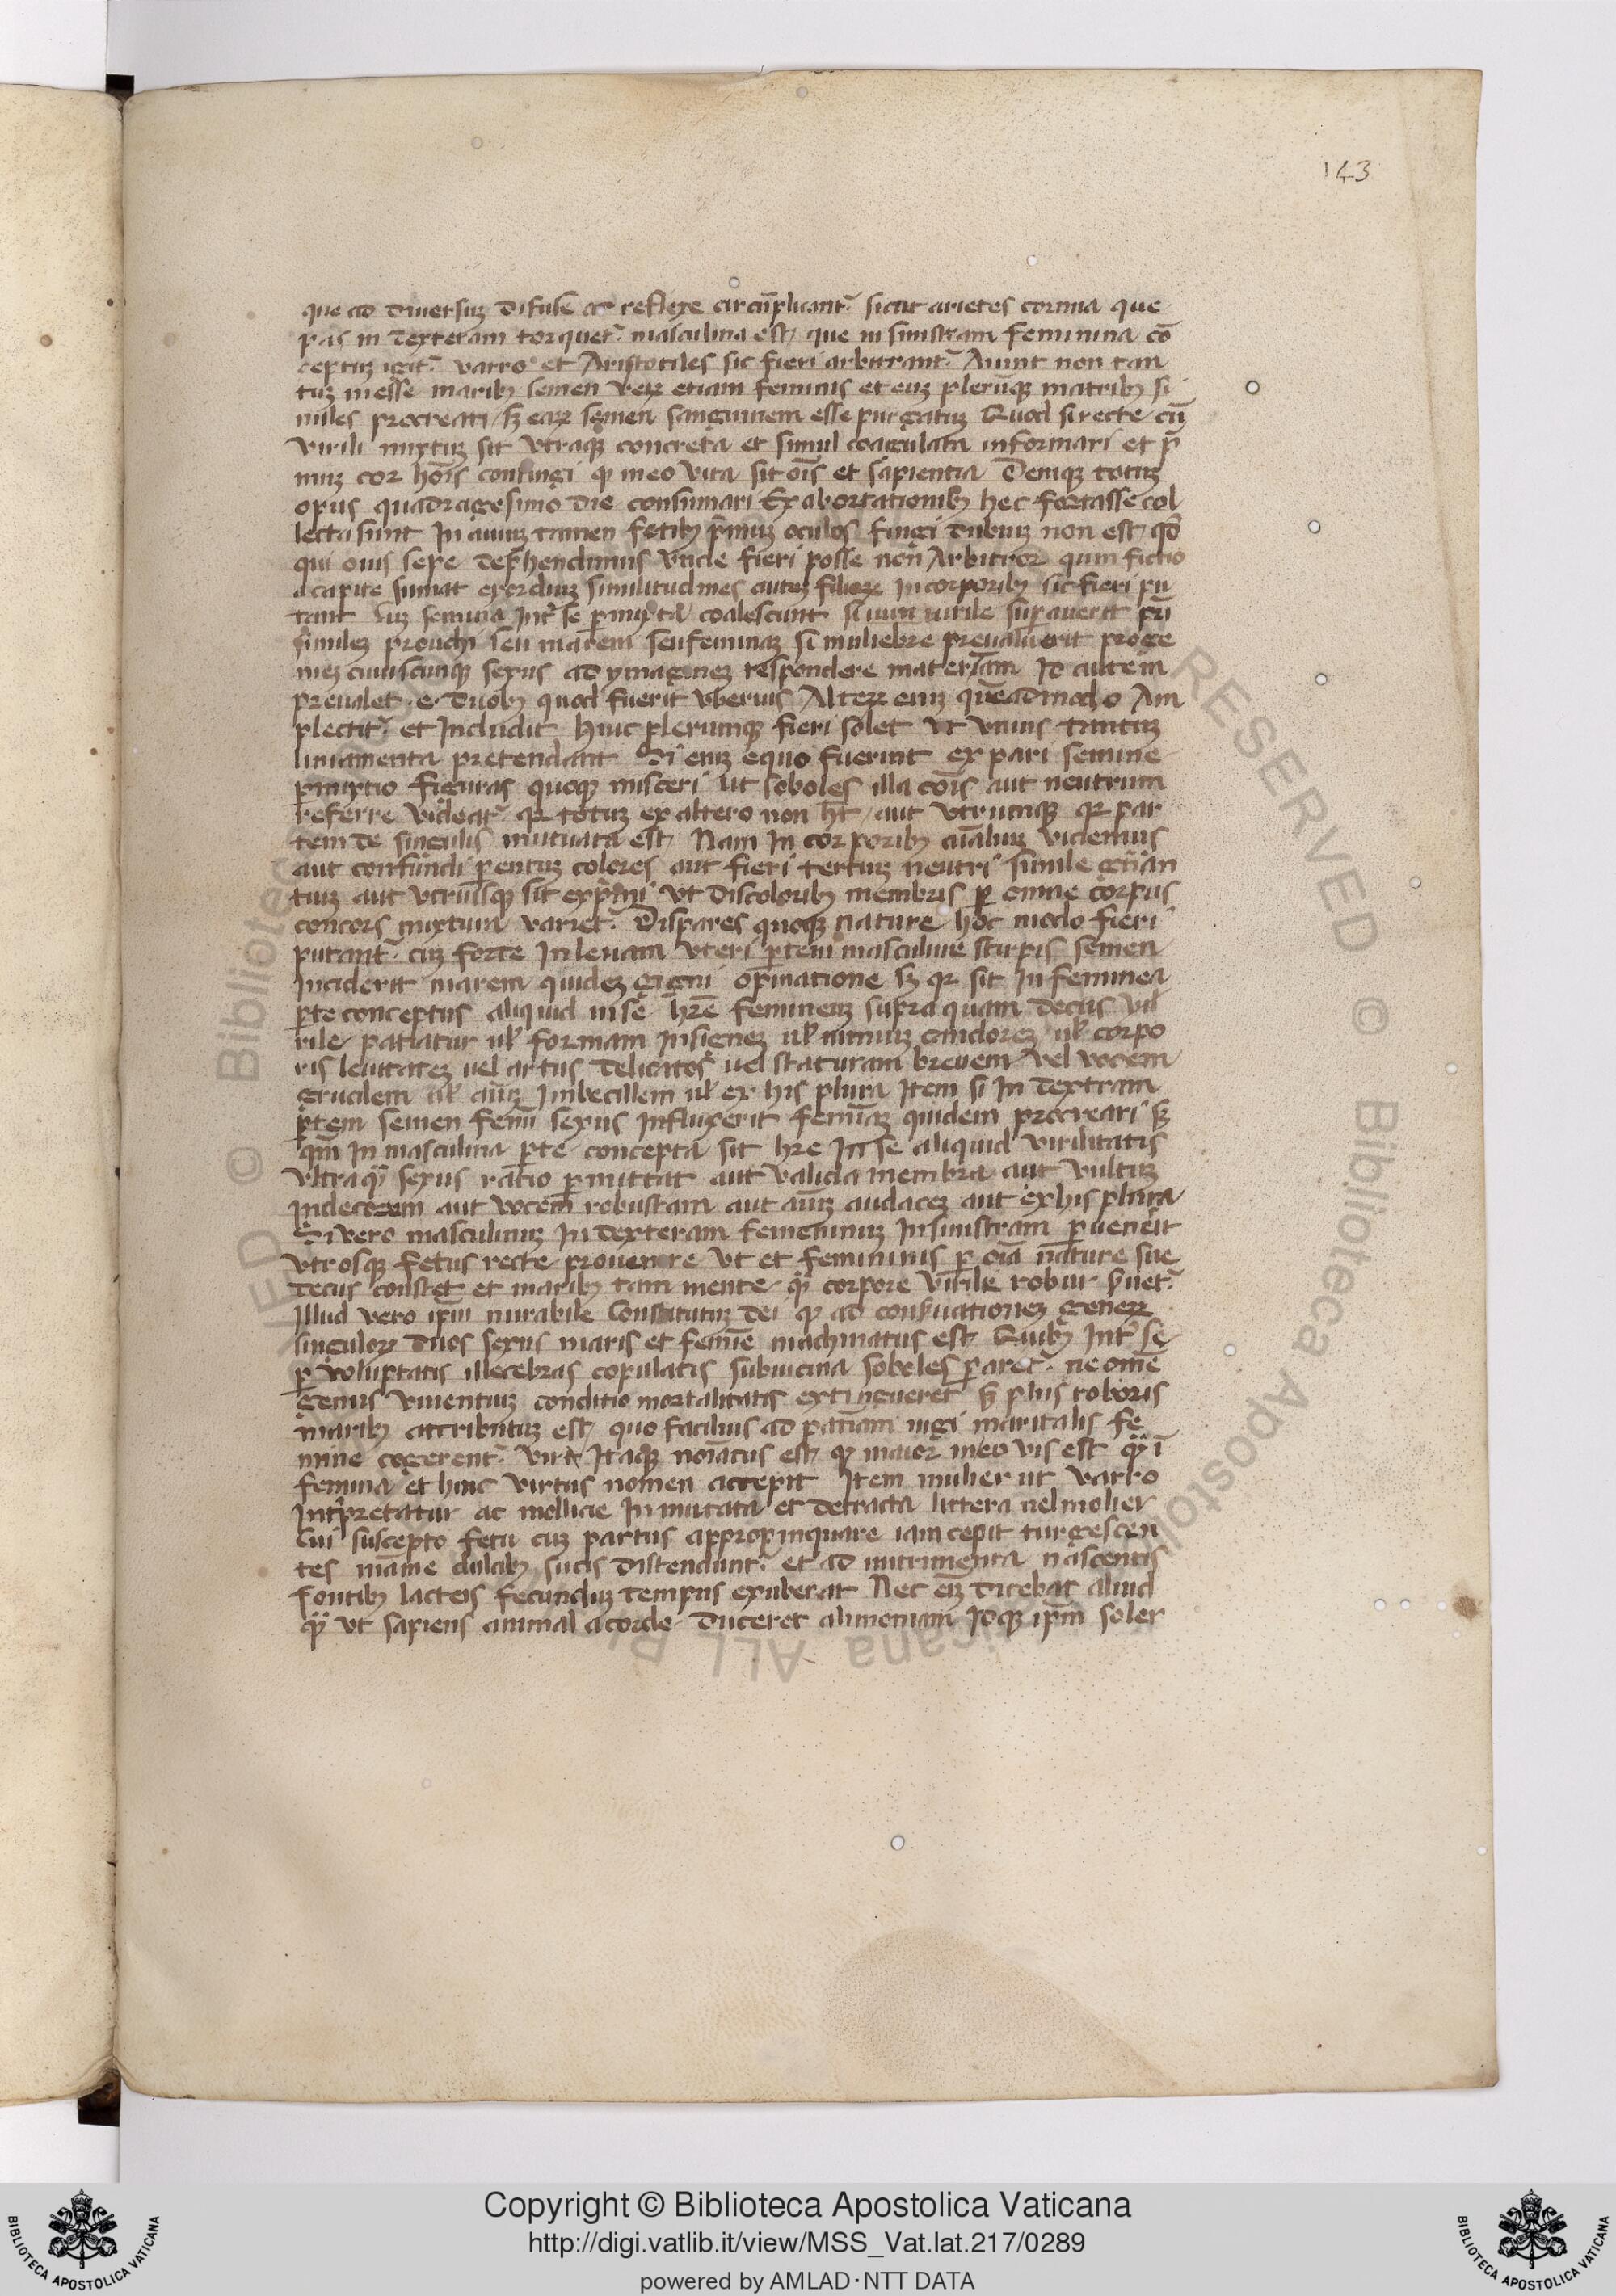 143
que ad diuersuꝫ difuse ac reflexe circũplicant᷑ sicut arietes cornua que
pas in dexteram torquet᷑ masculina est que in sinistram feminina cõ
ceptuꝫ igit᷑ varro et Aristotiles sic fieri arbitrant᷑ Aiunt non tan
tuꝫ inesse maribꝫ semen veꝝ etiam feminis et eiꝫ plerũqꝫ matribꝫ si
miles procreari sꝫ eaꝝ semen sanguinem esse purgatuꝫ Quod si recte cũ
virili mixtuꝫ sit vtraqꝫ concreta et simul coagulata informari et p̃
muꝫ cor hoĩs confingi ꝙ in eo vita sit oĩs et sapientia Deniqꝫ totuꝫ
opus quadragesimo die consumari Ex abortationibꝫ hec fortasse col
lecta sunt In auiuꝫ tamen fetibꝫ p̃muꝫ oculos fingi dubiuꝫ non est qd̃
qui ouis sepe dep̃hendimus vnde fieri posse non Arbitror quin fictio
a capite sumat exordiuꝫ similitudines auteꝫ filioꝝ in corporibꝫ sic fieri pu
tant Cuꝫ semina int̃ se ꝑmixta coalescunt si uirile suꝑauerit pr̃i
simileꝫ prouehi seu marem seu feminaꝫ si muliebre preualuerit proge
nieꝫ cuiuscunqꝫ sexus ad ymagineꝫ respondere maternam Id autem
preualet e duobꝫ quod fuerit vberius Alteꝝ eniꝫ quẽadmodo Am
plectit᷑ et Includit hinc plerumqꝫ fieri solet vt vnius tantuꝫ
liniamenta pretendant Si eniꝫ equo fuerint ex pari semine
ꝑmixtio figuras quoqꝫ misceri ut soboles illa cõis aut neutrum
referre videat᷑ ꝗꝛ totuꝫ ex altero non ht̃ aut vtrumqꝫ ꝗꝛ par
tem de singulis mutuata est Nam In corporibꝫ aĩaliuꝫ videmus
aut confundi ꝑentuꝫ colores aut fieri tertiuꝫ neutri simile gñan
tiuꝫ aut vtriusqꝫ sit exp̃mi vt discoloribꝫ membris ꝑ omne corpus
concors mixtura variet᷑ Dispares quoqꝫ nature hoc modo fieri
putant᷑ cuꝫ forte In leuam vteri ꝑtem masculine stirpis semen
Inciderit marem quideꝫ gigni opinatione sꝫ ꝗꝛ sit In feminea
ꝑte conceptus aliquid in se hr̃e femineuꝫ supra quam decus vi
rile patiatur uł formam Insigneꝫ uł nimiuꝫ candoreꝫ uł corpo
ris leuitateꝫ uel artus delicatos uel staturam breuem vel vocem
gracilem uł aĩuꝫ Imbecillem uł ex his plura Item si In dextram
ꝑtem semen femĩ sexus Influxerit femĩaꝫ quidem procreari sꝫ
qm̃ In masculina ꝑte concepta sit hr̃e In se aliquid virilitatis
vltra qꝫ sexus ratio ꝑmittat aut valida membra aut vultuꝫ
Indecorem aut vocem robustam aut aĩuꝫ audaceꝫ aut ex his plura
Si vero masculinuꝫ In dexteram femeninuꝫ In sinistram ꝑuenerit
vtrosqꝫ fetus recte prouenire vt et femininis ꝑ oĩa nature sue
decus constet et maribꝫ tam mente ꝙ̃ corpore virile robur s̃uet᷑
Illud vero ip̃m mirabile Constitutuꝫ dei ꝙ ad cons̃uationeꝫ geneꝝ
singuloꝝ duos sexus maris et femĩe machinatus est Quibꝫ Int̃ se
ꝑ voluptatis illecebras copulatis subuicina soboles ꝑaret᷑ ne omẽ
genus viuentiuꝫ conditio mortalitatis extingueret sꝫ plus roboris
maribꝫ attributuꝫ est quo facilius ad patiẽtiam iugi maritalis fe
mine cogerent᷑ Vir Itaqꝫ noĩatus est ꝙ maior in eo vis est ꝙ̃ ĩ
femina et hinc virtus nomen accepit Item mulier ut varro
Int̃pretatur ac mollicie Inmutata et detracta littera uel molier
Cui suscepto fetu cuꝫ partus appropinquare iam cepit turgescen
tes mãme dulcibꝫ sucis distendunt᷑ et ad nutrimenta nascentis
fontibꝫ lacteis fecunduꝫ tempus exuberat Nec eiꝫ dicebat aliud
ꝙ̃ vt sapiens animal a corde duceret alimoniam Idqꝫ ip̃m soler
Copyright © Biblioteca Apostolica Vaticana
http://digi.vatlib.it/view/MSS_Vat.lat.217/0289
powered by AMLAD·NTT DATA
BIBLIOTECA APOSTOLICA VATICANA
BIBLIOTECA APOSTOLICA VATICANA